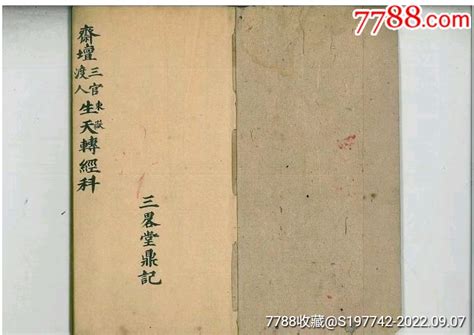 7788.com
齋壇三官東嶽渡人生天轉經科
三畧堂鼎記
7788收藏@S197742-2022.09.07